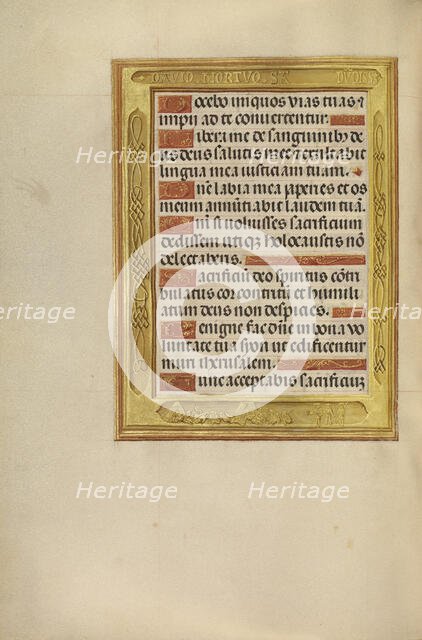 DAVID. MORTVO. SE
Docebo iniquos vias tuas &
impii ad te convertentur.
Libera me de sanguinib9 de
us deus salutis mee & exultabit
lingua mea iusticiam tuam.
Dñe labia mea aperies et os
meum annũtiabit laudem tuã.
Qm̃ si voluisses sacrificium
dedissem utiqꝫ holocaustis nõ
delectaberis.
Sacrificiũ deo spiritus cõtri
bulatus cor contritũ et humili
atum deus non despicies.
Benigne fac dñe in bona vo
luntate tua syon ut edificentur
muri iherusalem.
Tunc acceptabis sacrificiũ
Heritage
Heritage
Heritage
Heritage
Heritage
Heritage
Heritage
Heritage
Heritage